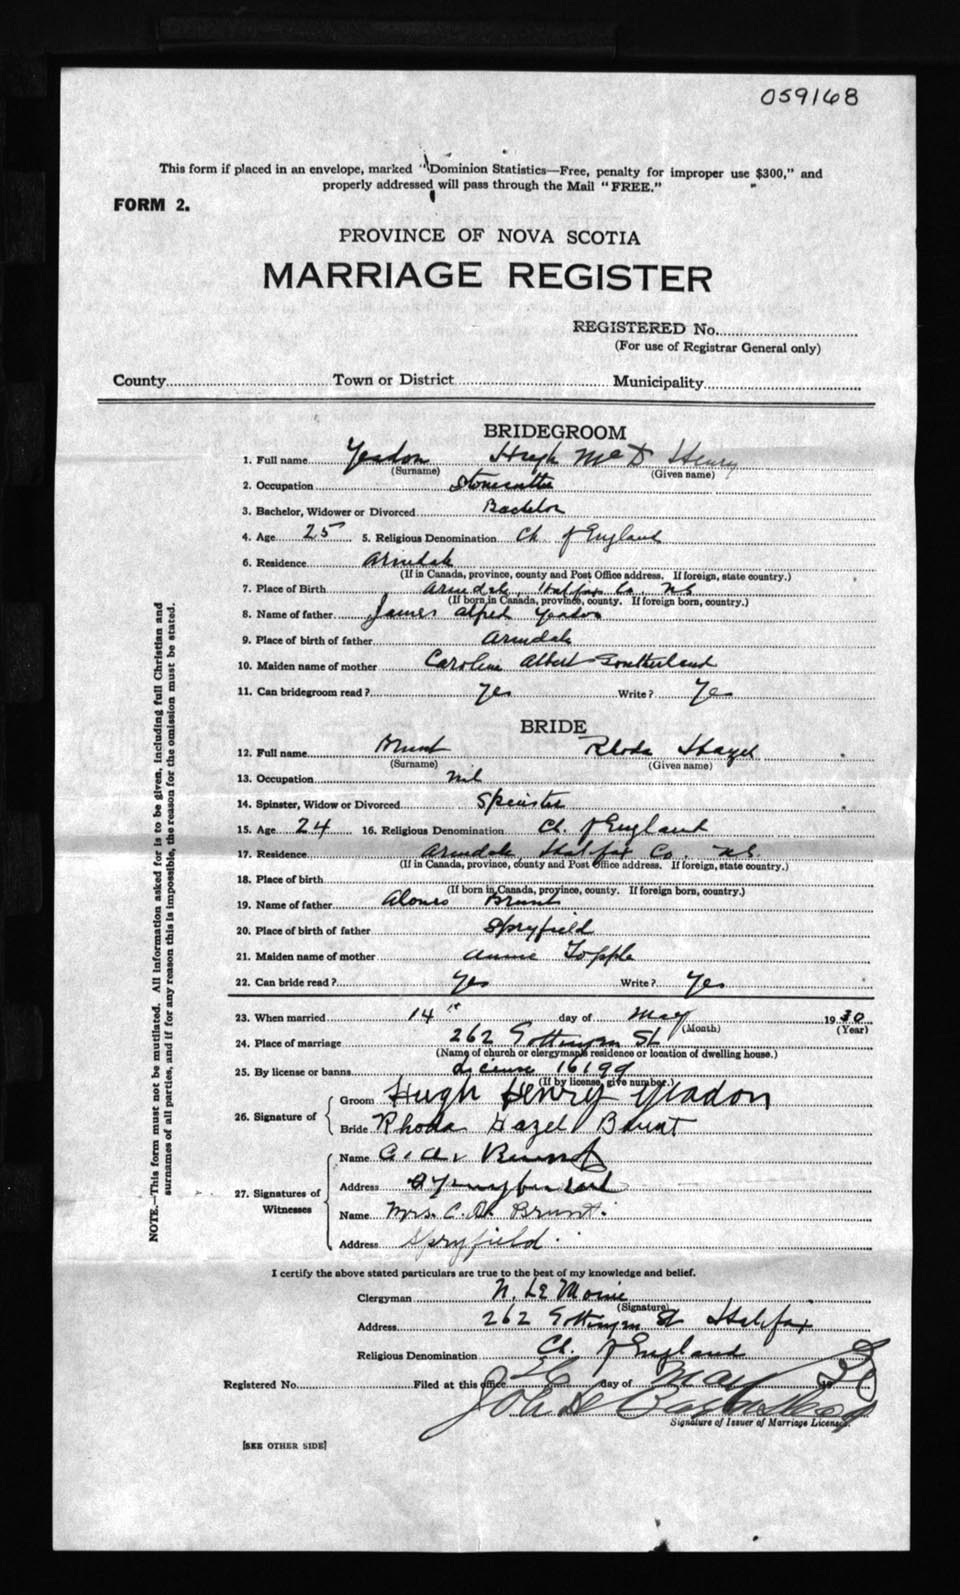 059168
This form if placed in an envelope, marked "Dominion Statistics—Free, penalty for improper use $300," and
properly addressed will pass through the Mail "FREE."
FORM 2.
PROVINCE OF NOVA SCOTIA
MARRIAGE REGISTER
REGISTERED No.
(For use of Registrar General only)
County Town or District Municipality
BRIDEGROOM
1. Full name Yeadon Hugh McD Henry
(Surname) (Given name)
2. Occupation Stonecutter
3. Bachelor, Widower or Divorced Bachelor
4. Age 25 5. Religious Denomination Ch. of England
6. Residence Armdale
(If in Canada, province, county and Post Office address. If foreign, state country.)
7. Place of Birth Armdale, Halifax Co. NS
(If born in Canada, province, county. If foreign born, country.)
8. Name of father James Alfred Yeadon
9. Place of birth of father Armdale
10. Maiden name of mother Caroline Albert Southerland
11. Can bridegroom read? Yes Write? Yes
BRIDE
12. Full name Brunt Rhoda Hazel
(Surname) (Given name)
13. Occupation nil
14. Spinster, Widow or Divorced Spinster
15. Age 24 16. Religious Denomination Ch. of England
17. Residence Armdale Halifax Co. N.S.
(If in Canada, province, county and Post Office address. If foreign, state country.)
18. Place of birth
(If born in Canada, province, county. If foreign born, country.)
19. Name of father Alonzo Brunt
20. Place of birth of father Spryfield
21. Maiden name of mother Annie Topple
22. Can bride read? Yes Write? Yes
23. When married 14th day of May 1930
(Month) (Year)
24. Place of marriage 262 Gottingen St
(Name of church or clergyman's residence or location of dwelling house.)
25. By license or banns License 16199
(If by license, give number.)
26. Signature of
Groom Hugh Henry Yeadon
Bride Rhoda Hazel Brunt
27. Signatures of Witnesses
Name Brunt
Address
Name Mrs. C. A. Brunt.
Address Spryfield.
I certify the above stated particulars are true to the best of my knowledge and belief.
Clergyman N. Le Moine
(Signature)
Address 262 Gottingen St Halifax
Religious Denomination Ch. of England
Registered No. Filed at this office day of May 19 30
Signature of Issuer of Marriage Licenses.
[SEE OTHER SIDE]
NOTE.—This form must not be mutilated. All information asked for is to be given, including full Christian and
surnames of all parties, and if for any reason this is impossible, the reason for the omission must be stated.